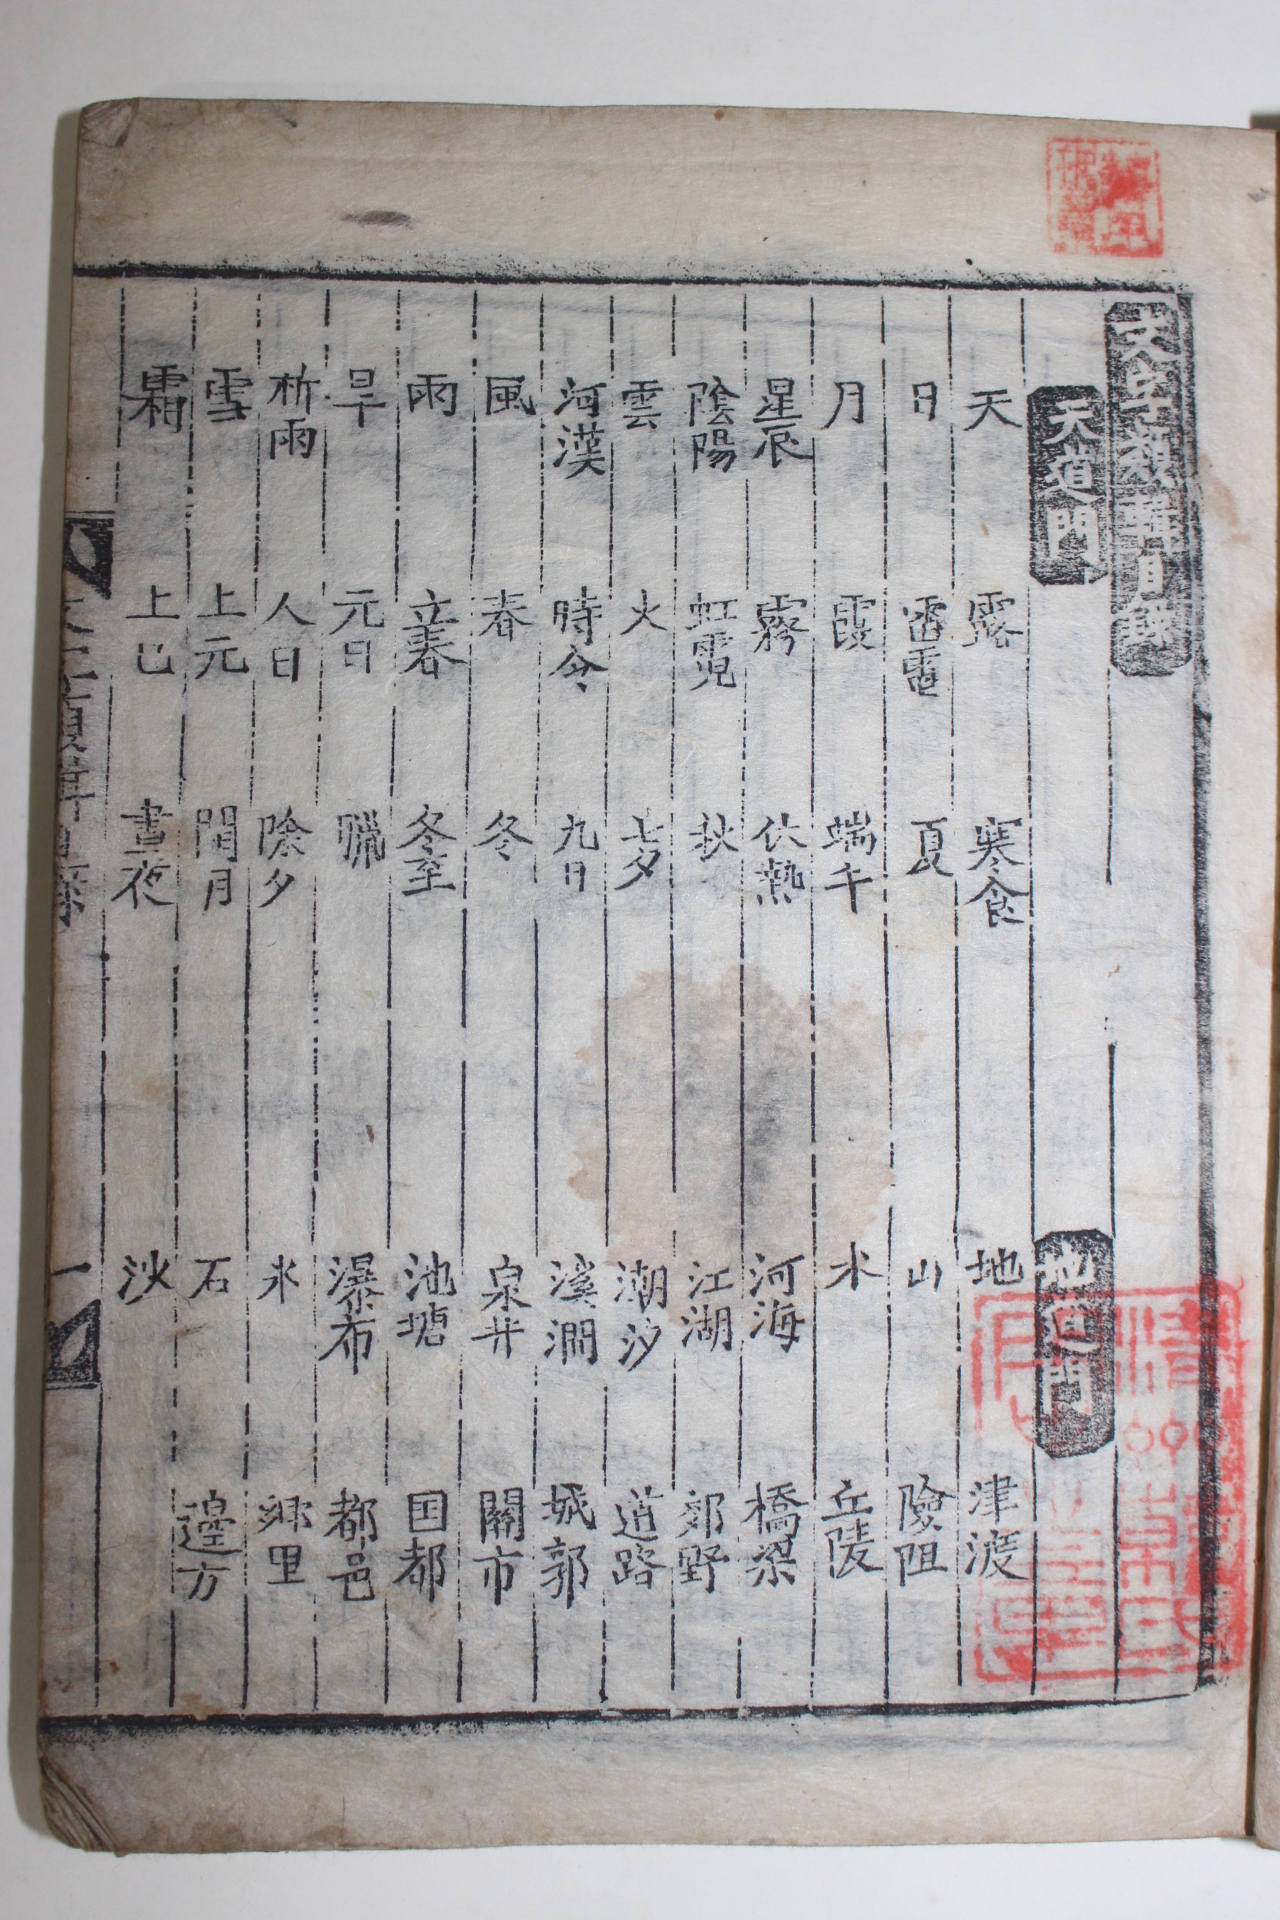 文字類輯目錄
天道門 地道門
天 露 寒食 地 津渡
日 雷電 夏 山 險阻
月 霞 端午 水 丘陵
星辰 霧 伏熱 河海 橋梁
陰陽 虹霓 秋 江湖 郊野
雲 火 七夕 潮汐 道路
河漢 時令 九日 溪澗 城郭
風 春 冬 泉井 關市
雨 立春 冬至 池塘 国都
旱 元日 臘 瀑布 都邑
祈雨 人日 除夕 氷 鄉里
雪 上元 閏月 石 邊方
霜 上巳 晝夜 沙
文字類輯目錄 一